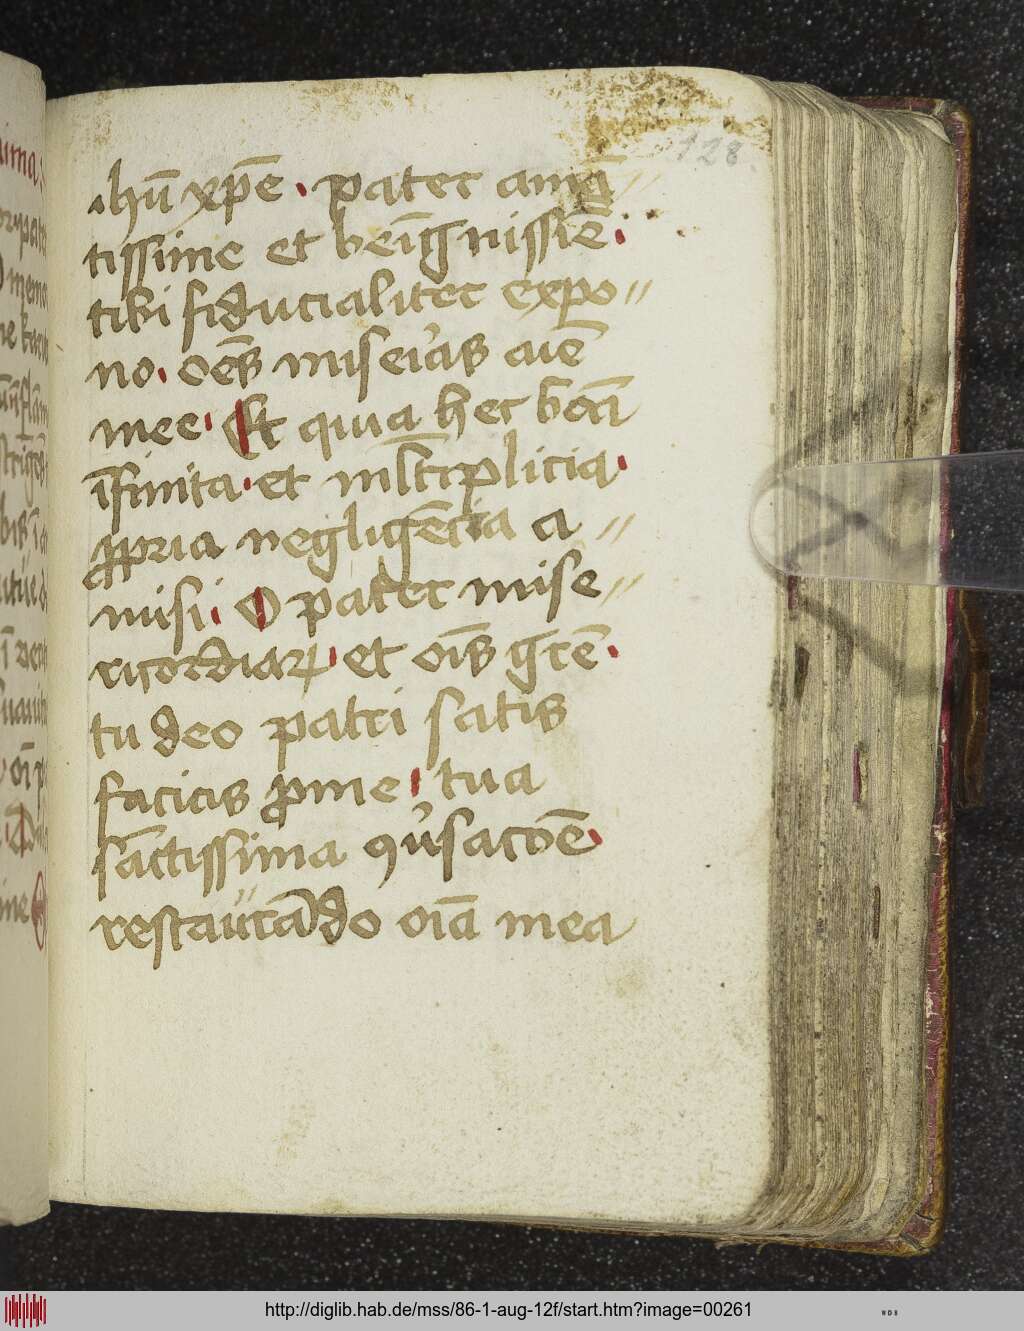 128
ihū xp̄e. pater ama⸗
tissime et beīgnissīe.
tibi fiducialiter expo⸗
no. oēs miseͥas aīe
mee. Et quia hec bona
īfinita. et ml̄tiplicia.
ꝓpria negligēcia a⸗
misi. O pater mise⸗
ricordiarꝫ. et oīs gr̄e.
tu deo patri satis
facias ꝓ me. tua
sāctissima ꝯuͥsacōe.
restaurādo oīa mea
http://diglib.hab.de/mss/86-1-aug-12f/start.htm?image=00261